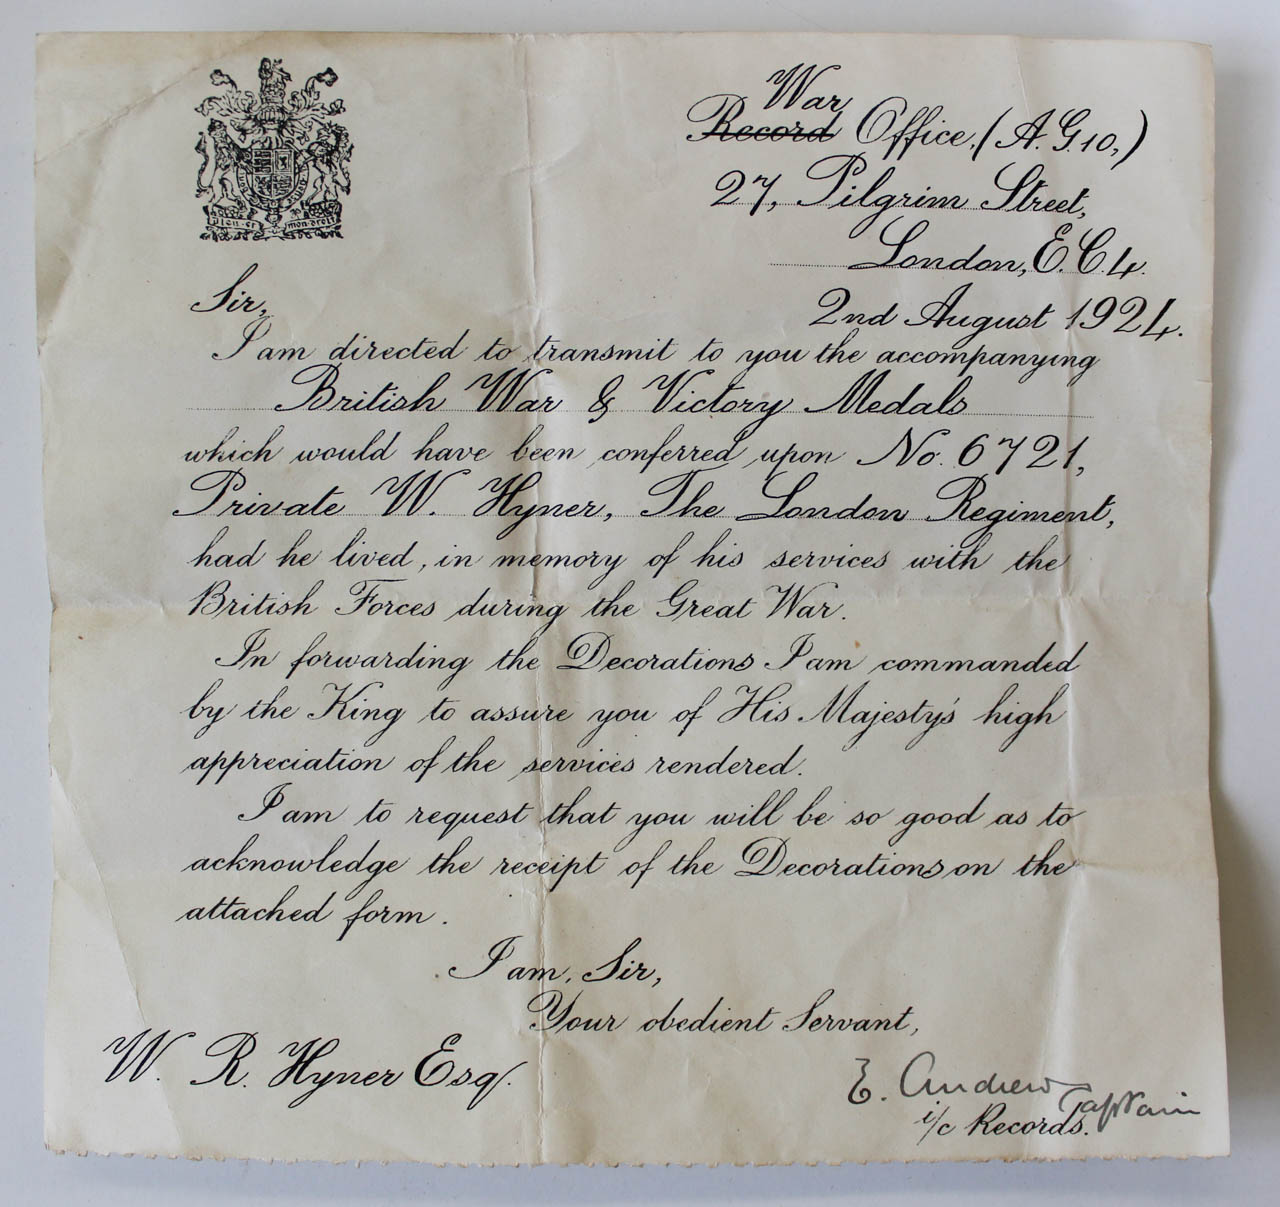 Dieu et mon droit
War
Record Office, (A.G.10,)
27, Pilgrim Street,
London, E.C.4.
2nd August 1924.
Sir,
I am directed to transmit to you the accompanying
British War & Victory Medals
which would have been conferred upon No. 6721,
Private W. Hyner, The London Regiment,
had he lived, in memory of his services with the
British Forces during the Great War.
In forwarding the Decorations I am commanded
by the King to assure you of His Majesty's high
appreciation of the services rendered.
I am to request that you will be so good as to
acknowledge the receipt of the Decorations on the
attached form.
I am, Sir,
Your obedient Servant,
W. R. Hyner Esq.
E. Andrew Captain
i/c Records.